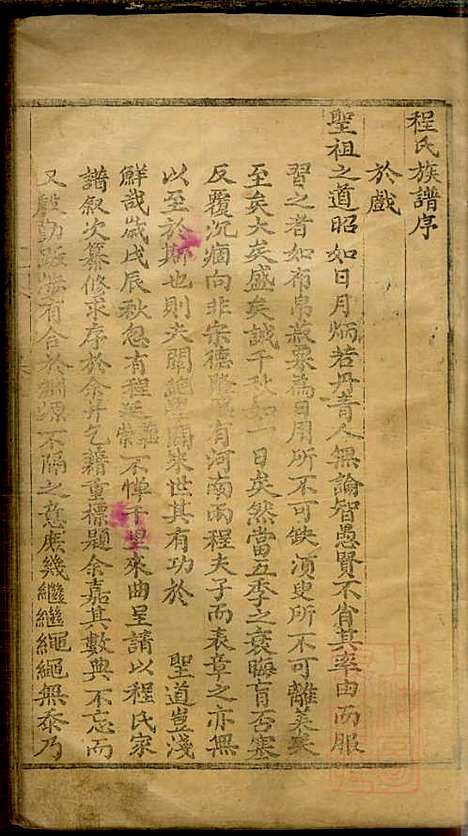 程氏族譜序
於戲
聖祖之道昭如日月炳若丹青人無論智愚賢不省其率由而服
習之者如布帛菽粟為日用所不可缺須臾所不可離美矣
至矣大矣盛矣誠千秋如一日矣然當五季之衰晦盲否塞
反覆沉痼向非宋德隆盛有河南兩程夫子而表章之亦無
以至於斯也則夫閑先聖開來世其有功於 聖道豈淺
鮮哉歲戊辰秋忽有程延 不憚千里來曲呈請以程氏家
譜叙次纂修求序於余并乞籍重標題余嘉其數典不忘而
又殷勤跋涉有合於淵源不隔之意庶幾繼繼繩繩無忝乃